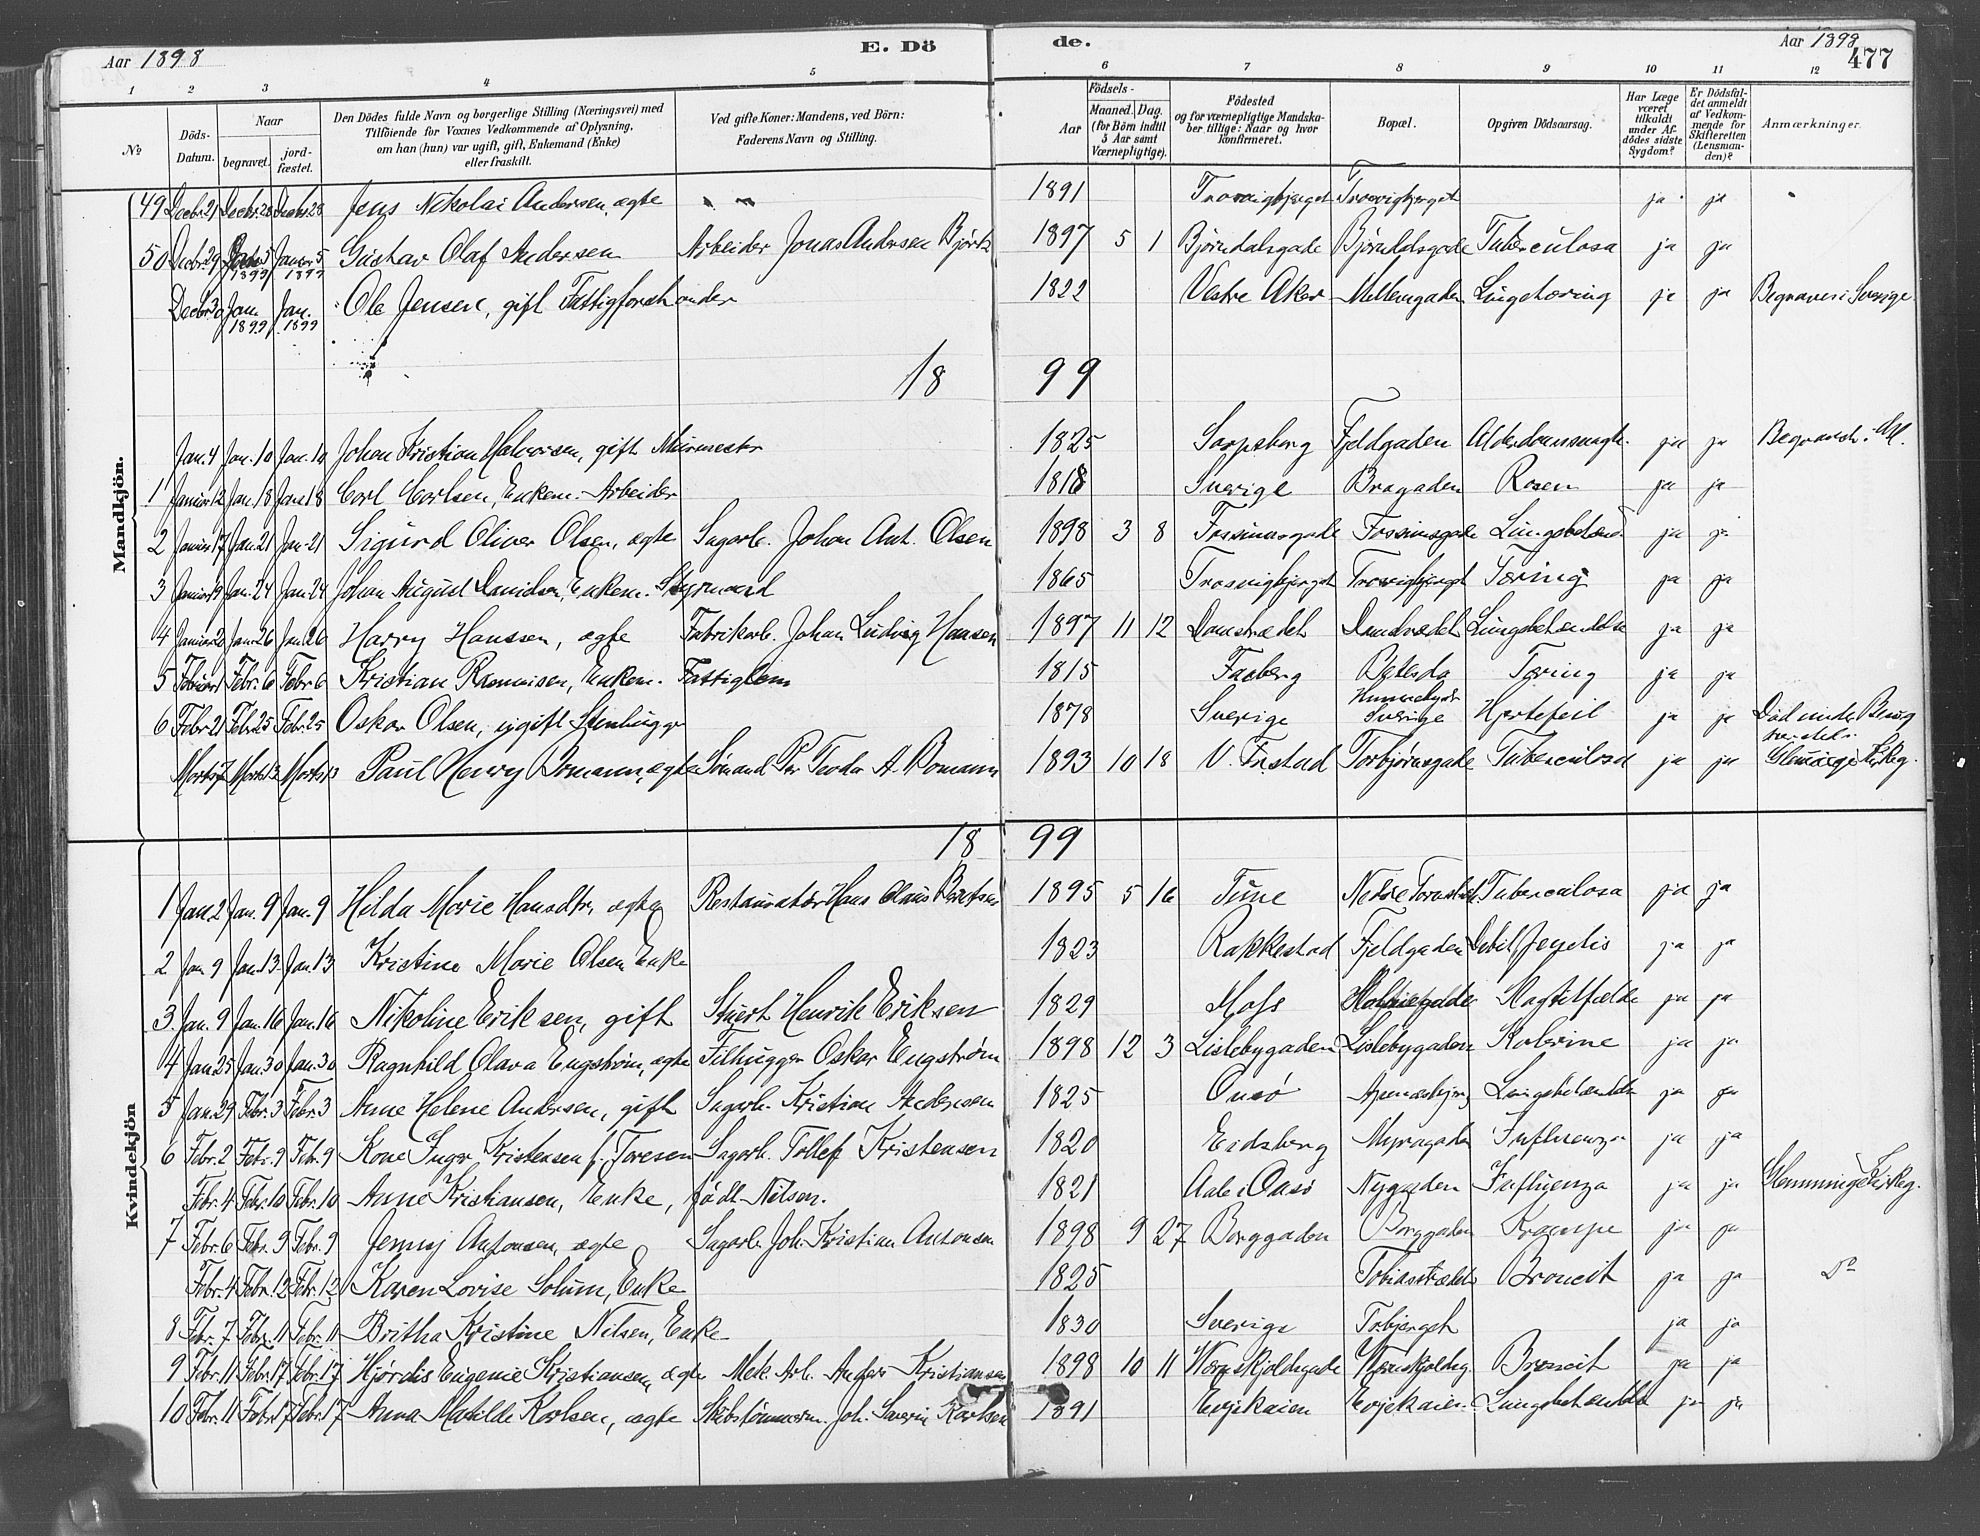 Aar 1898 E. Dö de. Aar 1898 477
1 2 3 4 5 6 7 8 9 10 11 12
No Döds-Datum. Naar begravet. jord-fæstet. Den Dödes fulde Navn og borgerlige Stilling (Næringsvei) med Tilföiende for Voxnes Vedkommende af Oplysning, om han (hun) var ugift, gift, Enkemand (Enke) eller fraskilt. Ved gifte Koner: Mandens, ved Börn: Faderens Navn og Stilling. Födsels- Aar Maaned. Dag. (for Börn indtil 5 Aar samt Værnepligtige). Födested og for værnepligtige Mandskaber tillige: Naar og hvor konfirmeret. Bopæl. Opgiven Dödsaarsag. Har Læge været tilkaldt under Afdödes sidste Sygdom? Er Dödsfaldet anmeldt af Vedkommende for Skifteretten (Lensmanden)? Anmærkninger.
Mandkjön.
49 Decbr. 21 Decbr. 28 Decbr. 28 Jens Nikolai Andersen, ægte " " 1891 Trosvigbjerget Trosvigbjerget ja ja
50 Decbr. 29 Janr 5 1899 Januar 5 1899 Gustav Olaf Andersen Arbeider Jonas Andersen 1897 5 1 Bjørndalsgade Bjørndalsgade Tuberculosa ja ja
Decbr. 30 Jan. 1899 Jan. 1899 Ole Jensen, gift Fattigforstander 1822 Vestre Aker Mellemgaden Lungetæring ja ja Begraves i Sverige
18 99
Jan. 4 Jan. 10 Jan. 10 Johan Kristian Halvorsen, gift Murmester 1825 Sarpsborg Fjeldgaden Alderdomssvagh. ja ja
1 Januar 12 Jan. 18 Jan. 18 Carl Carlsen, Enkem. Arbeider 1818 Sverige Brogaden Rosen ja ja
2 Januar 17 Jan. 21 Jan. 21 Sigurd Oliver Olsen, ægte Sagarb. Johan Ant. Olsen 1898 3 8 Fossumsgade Fossumsgade ja ja
3 Januar 19 Jan. 24 Jan. 24 Johan August Danielsen, Enkem. Styrmand 1865 Trosvigbjerget Trosvigbjerget Tæring ja ja
4 Januar 20 Jan. 26 Jan. 26 Harry Hanssen, ægte Fabrikarb. Johan Ludvig Hansen 1897 11 12 Damstrædet Damstrædet Lungebetændelse ja ja
5 Februar 1 Febr. 6 Febr. 6 Kristian Rasmusen, Enkem. Fattiglem 1815 Faaberg Betesda Tæring ja ja
6 Febr. 21 Febr. 25 Febr. 25 Oskar Olsen, ugift Stenhugger 1878 Sverige Sverige Hjertefeil ja ja Død under
Marts 7 Marts 13 Marts 13 Paul Henry Bomann, ægte Sømand Per Teodor A. Bomann 1893 10 18 V. Fr.stad Torbjørnsgade Tuberculosa ja ja Glemminge Kirkeg.
18 99
Kvindekjön
1 Jan. 2 Jan. 9 Jan. 9 Hilda Marie Hansdtr, ægte Restauratør Hans Olaus Berntsen 1895 5 16 Tune Nedre Tuberculosa ja ja
2 Jan 9 Jan. 13 Jan. 13 Kristine Marie Olsen Enke 1823 Rakkestad Fjeldgaden Debil. Senilis ja ja
3 Jan. 9 Jan. 16 Jan. 16 Nikoline Eriksen, gift Stuert Henrik Eriksen 1829 Moss Slagtilfælde ja ja
4 Jan 25 Jan. 30 Jan. 30 Ragnhild Olava Engstrøm, ægte Filhugger Oskar Engstrøm 1898 12 3 Lislebygaden Lislebygaden Kolerine ja ja
5 Jan. 29 Febr. 3 Febr. 3 Anne Helene Andersen, gift Sagarb. Kristian Andersen 1825 Onsø Lungebetændelse ja ja
6 Febr. 2 Febr. 9 Febr. 9 Kone Inger Kristensen f. Toresen Sagarb. Tollef Kristensen 1820 Eidsberg Myragaden Influenza ja ja
Febr. 4 Febr. 10 Febr. 10 Anne Kristiansen, Enke, født Nilsen. 1821 Aale i Onsø Nygaden Influenza ja ja Glemminge Kirkeg.
7 Febr. 6 Febr. 9 Febr. 9 Jenny Antonsen, ægte Sagarb. Joh. Kristian Antonsen 1898 9 27 Borggaden Borggaden Krampe ja ja
Febr. 4 Febr. 12 Febr. 12 Karen Lovise Solum, Enke 1825 Tobiasstrædet Broncit ja ja Do
8 Febr. 7 Febr. 11 Febr. 11 Britha Kristine Nilsen, Enke 1830 Sverige ja ja
9 Febr. 11 Febr. 17 Febr. 17 Hjørdis Eugenie Kristiansen, ægte Mek. Arb. Anders Kristiansen 1898 10 11 Wærnskjoldsgade Wærnskjoldsg. Broncit ja ja
10 Febr. 11 Febr. 17 Febr. 17 Anna Matilde Karlsen, ægte Skibstømmerm. Joh. Severin Karlsen 1891 Evjekaien Evjekaien Lungebetændelse ja ja